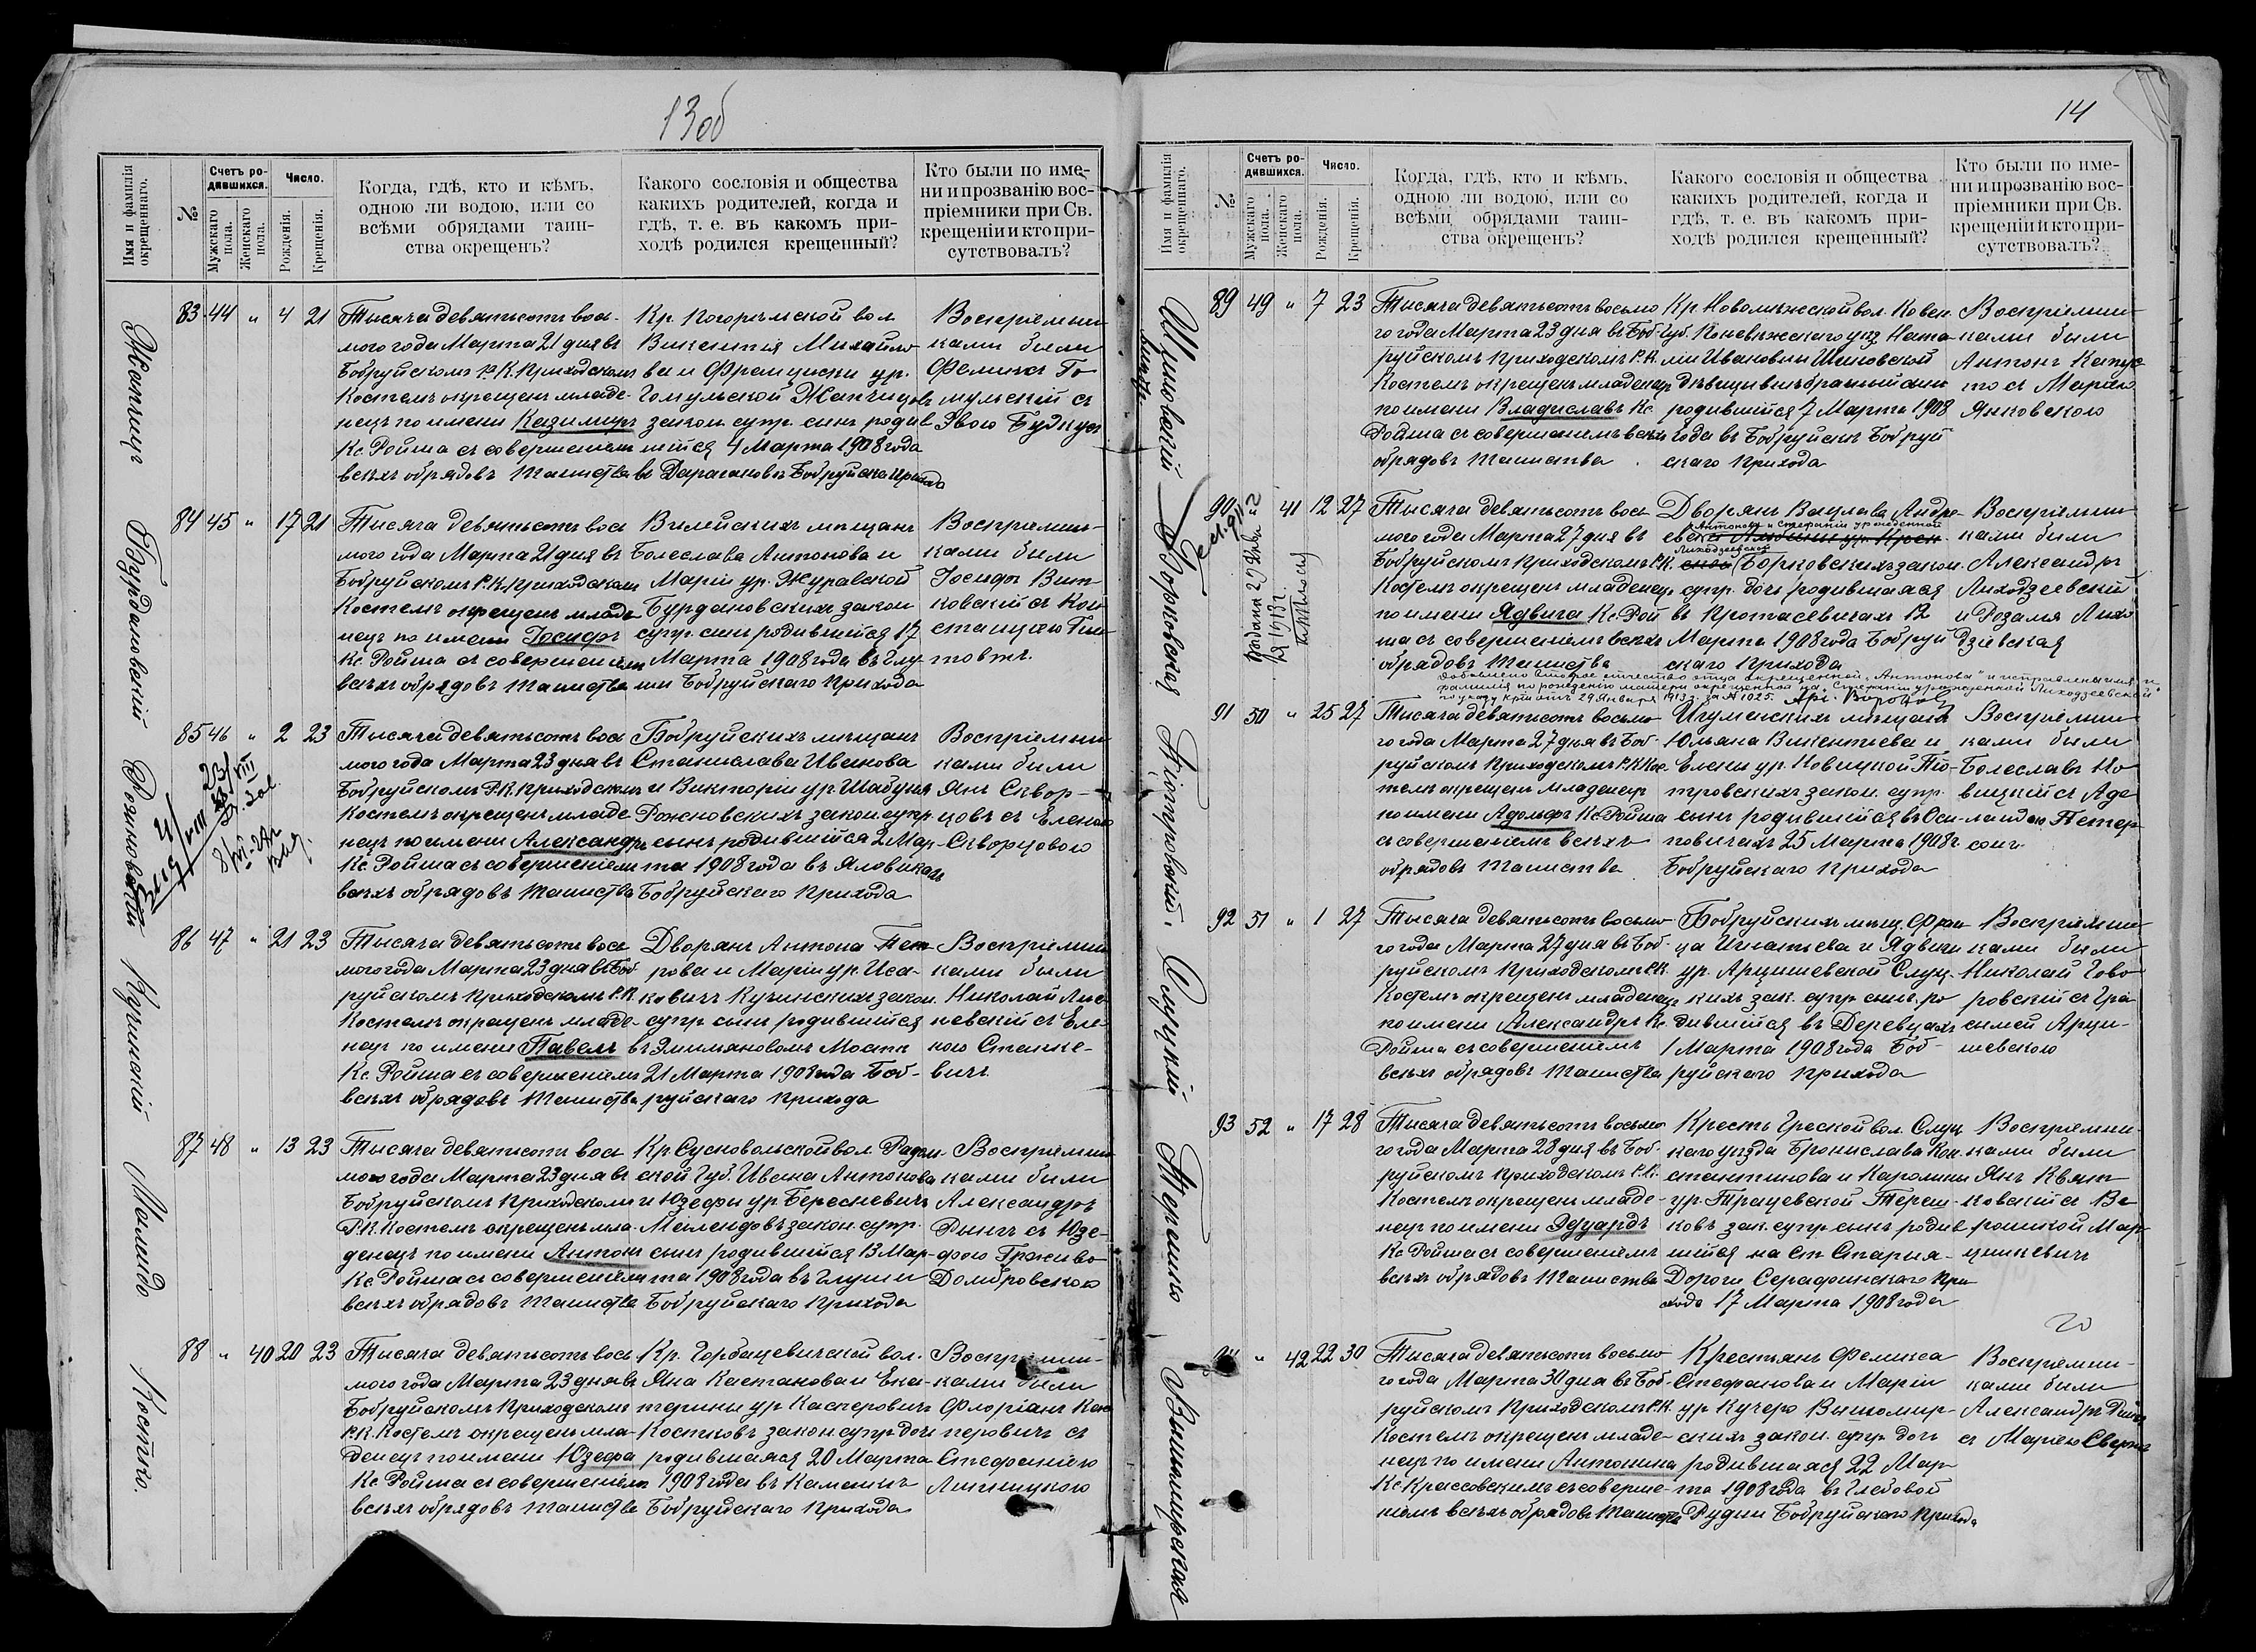 13об
Имя и фамилія окрещеннаго.
№
Счетъ родившихся.
Мужскаго пола.
Женскаго пола.
Число.
Рожденія.
Крещенія.
Когда, гдѣ, кто и кѣмъ,
одною ли водою, или со
всѣми обрядами таин-
ства окрещенъ?
Какого сословія и общества
какихъ родителей, когда и
гдѣ, т. е. въ какомъ при-
ходѣ родился крещенный?
Кто были по име-
ни и прозванію вос-
пріемники при Св.
крещеніи и кто при-
сутствовалъ?
83 44 „ 4 21
Тысяча девятьсотъ вось-
мого года Марта 21 дня въ
Бобруйскомъ Р.К. Приходскомъ
Костелѣ окрещенъ младе-
нецъ по имени Казимиръ
Кс. Ройша съ совершеніемъ
всѣхъ обрядовъ таинства
Кр. Погорѣльской вол.
Викентія Михайло-
ва и Францишки ур.
Гомульской
закон. супр. сынъ родив
шійся 4 Марта 1908 года
въ Дарагановѣ Бобруйска прихода
Воспріемни-
ками были
Феликсъ Го-
мульскій съ
Эвою
Бурдановскій
84 45 „ 17 21
Тысяча девятьсотъ вось
мого года Марта 21 дня въ
Бобруйскомъ Р.К. Приходскомъ
Костелѣ окрещенъ младе
нецъ по имени Іосифъ
Кс. Ройша съ совершеніемъ
всѣхъ обрядовъ таинства
Вилейскихъ мѣщанъ
Болеслава Антонова и
Маріи ур. Журавской
Бурдановскихъ закон
супр. сынъ родившійся 17
Марта 1908 года въ Глу-
ши Бобруйскаго прихода
Воспріемни-
ками были
Іосифъ Вит-
ковскій съ Кон
станціею
Рожновскій
85 46 „ 2 23
Тысяча девятьсотъ вось
мого года Марта 23 дня въ
Бобруйскомъ Р.К. Приходскомъ
Костелѣ окрещенъ младе
нецъ по имени Александръ
Кс. Ройша съ совершеніемъ
всѣхъ обрядовъ таинства
Бобруйскихъ мѣщанъ
Станислава Иванова
и Викторіи ур. Шабуня
Рожновскихъ закон. супр.
сынъ родившійся 2 Мар-
та 1908 года въ Яловикахъ
Бобруйскаго прихода
Воспріемни-
ками были
Янъ Сквор-
цовъ съ Еленою
Скворцовою
Кучинскій
86 47 „ 21 23
Тысяча девятьсотъ вось
мого года Марта 23 дня въ Боб
руйскомъ Приходскомъ Р.К.
Костелѣ окрещенъ младе-
нецъ по имени Павелъ
Кс. Ройша съ совершеніемъ
всѣхъ обрядовъ таинства
Дворянъ Антона Пет-
рова и Маріи ур. Иса-
ковичъ Кучинскихъ закон.
супр. сынъ родившійся
въ Эмильяновомъ Мостѣ
21 Марта 1908 года Боб-
руйскаго прихода
Воспріемни
ками были
Николай
съ Еле-
ною Станке-
вичъ
Мойлендо
87 48 „ 13 23
Тысяча девятьсотъ вось
мого года Марта 23 дня въ
Бобруйскомъ Приходскомъ
Р.К. Костелѣ окрещенъ мла-
денецъ по имени Антонъ
Кс. Ройша съ совершеніемъ
всѣхъ обрядовъ таинства
Кр. Сусковольской вол. Радом-
ской Губ. Ивана Антонова
и Юзефы ур. Бересневичъ
закон. супр.
сынъ родившійся 13 Мар-
та 1908 года въ Глуши
Бобруйскаго прихода
Воспріемни
ками были
Александръ
съ Юзе-
фою Гржибо
Домбровскою
Костко.
88 „ 40 20 23
Тысяча девятьсотъ вось
мого года Марта 23 дня въ
Бобруйскомъ Приходскомъ
Р.К. Костелѣ окрещенъ мла-
денецъ по имени Юзефа
Кс. Ройша съ совершеніемъ
всѣхъ обрядовъ таинства
Кр. Горбацевичской вол.
Яна Каетанова и Ека-
терины ур. Касперовичъ
Костковъ закон супр. дочь
родившаяся 20 Марта
1908 года въ Каменкѣ
Бобруйскаго прихода
Воспріемни-
ками были
Флоріанъ Кас
перовичъ съ
Стефаніею
14
Имя и фамилія окрещеннаго.
№
Счетъ родившихся.
Мужскаго пола.
Женскаго пола.
Число.
Рожденія.
Крещенія.
Когда, гдѣ, кто и кѣмъ,
одною ли водою, или со
всѣми обрядами таин-
ства окрещенъ?
Какого сословія и общества
какихъ родителей, когда и
гдѣ, т. е. въ какомъ при-
ходѣ родился крещенный?
Кто были по име-
ни и прозванію вос-
пріемники при Св.
крещеніи и кто при-
сутствовалъ?
89 49 „ 7 23
Тысяча девятьсотъ восьмо
го года Марта 23 дня въ Боб-
руйскомъ Приходскомъ Р.К.
Костелѣ окрещенъ младенецъ
по имени Владиславъ Кс.
Ройша съ совершеніемъ всѣхъ
обрядовъ таинства
Кр. Новомѣжской вол. Ковен.
Губ. Поневѣжскаго уѣз. Ната
ліи Ивановны
дѣвицы внѣбрачный сын
родившійся 7 Марта 1908
года въ Бобруйскѣ Бобруй
скаго прихода
Воспріемни-
ками были
Антонъ Капус
то съ Маріею
Янковскою
Борковская
90 41 12 27
Тысяча девятьсотъ вось
мого года Марта 27 дня въ
Бобруйскомъ Приходскомъ Р.К.
Костелѣ окрещенъ младенецъ
по имени Ядвига Кс. Рой
ша съ совершеніемъ всѣхъ
обрядовъ таинства
Дворянъ Вацлава Андре
Антонова и Стефаніи урожденной
Лиходзеевской
Борковскихъ закон.
супр. дочь родившаяся
въ Протасевичахъ 12
Марта 1908 года Бобруй
скаго прихода
Воспріемни
ками были
Александръ
Лиходзеевскій
и Розалія Лихо
дзіевская
Добавлено второе отчество отца окрещенной „Антонова" и исправлены имя и
фамилія по рожденію матери окрещенной на „Стефаніи урожденной Лиходзеевской"
по указу отъ 29 Января 1913 г. за № 1025.
Піотровскій.
91 50 „ 25 27
Тысяча девятьсотъ восьмо
го года Марта 27 дня въ Боб-
руйскомъ Приходскомъ Р.К. Кос
телѣ окрещенъ младенецъ
по имени Адольфъ Кс. Ройша
съ совершеніемъ всѣхъ
обрядовъ таинства
Игуменскихъ мѣщанъ
Юльяна Викентіева и
Елены ур. Новицкой Піо-
тровскихъ закон. супр.
сынъ родившійся въ Оси-
повичахъ 25 Марта 1908 г.
Бобруйскаго прихода
Воспріемни
ками были
Болеславъ Но
вицкій съ Аде
лаидою Петер-
сонъ
Слуцкій
92 51 „ 1 27
Тысяча девятьсотъ восьмо
го года Марта 27 дня въ Боб-
руйскомъ Приходскомъ Р.К.
Костелѣ окрещенъ младенецъ
по имени Александръ Кс.
Ройша съ совершеніемъ
всѣхъ обрядовъ таинства
Бобруйскихъ мѣщ. Фран
ца Игнатьева и Ядвиги
ур. Арцишевской Слуц-
кихъ зак. супр. сынъ ро
дившійся въ Деревцахъ
1 Марта 1908 года Боб-
руйскаго прихода
Воспріемни
ками были
Николай Гово
ровскій съ
Арци-
шевскою
Терешко
93 52 „ 17 28
Тысяча девятьсотъ восьмо
го года Марта 28 дня въ Боб-
руйскомъ Приходскомъ Р.К.
Костелѣ окрещенъ младе-
нецъ по имени Эдуардъ
Кс. Ройша съ совершеніемъ
всѣхъ обрядовъ таинства
Кресть. Греской вол. Слуц
каго уѣзда Бронислава Кон
стантинова и Каролины
ур. Трацевской Тереш-
ковъ зак. супр. сынъ родив
шійся на Ст. Старыя-
Дороги Серафинскаго При
хода 17 Марта 1908 года
Воспріемни-
ками были
Янъ Квят-
ковскій съ Ве
роникой Мар-
цинкевичъ
Вышомирская
„ 42 22 30
Тысяча девятьсотъ восьмо
го года Марта 30 дня въ Боб-
руйскомъ Приходскомъ Р.К.
Костелѣ окрещенъ младе-
нецъ по имени Антонина
Кс. Крассовскимъ съ соверше-
ніемъ всѣхъ обрядовъ таинства
Крестьянъ Феликса
Стефанова и Маріи
ур. Кучеро Вышомир-
скихъ закон. супр. дочь
родившаяся 22 Мар
та 1908 года въ Глебовой
Рудни Бобруйскаго прихода
Воспріемни-
ками были
Александръ
съ Маріею